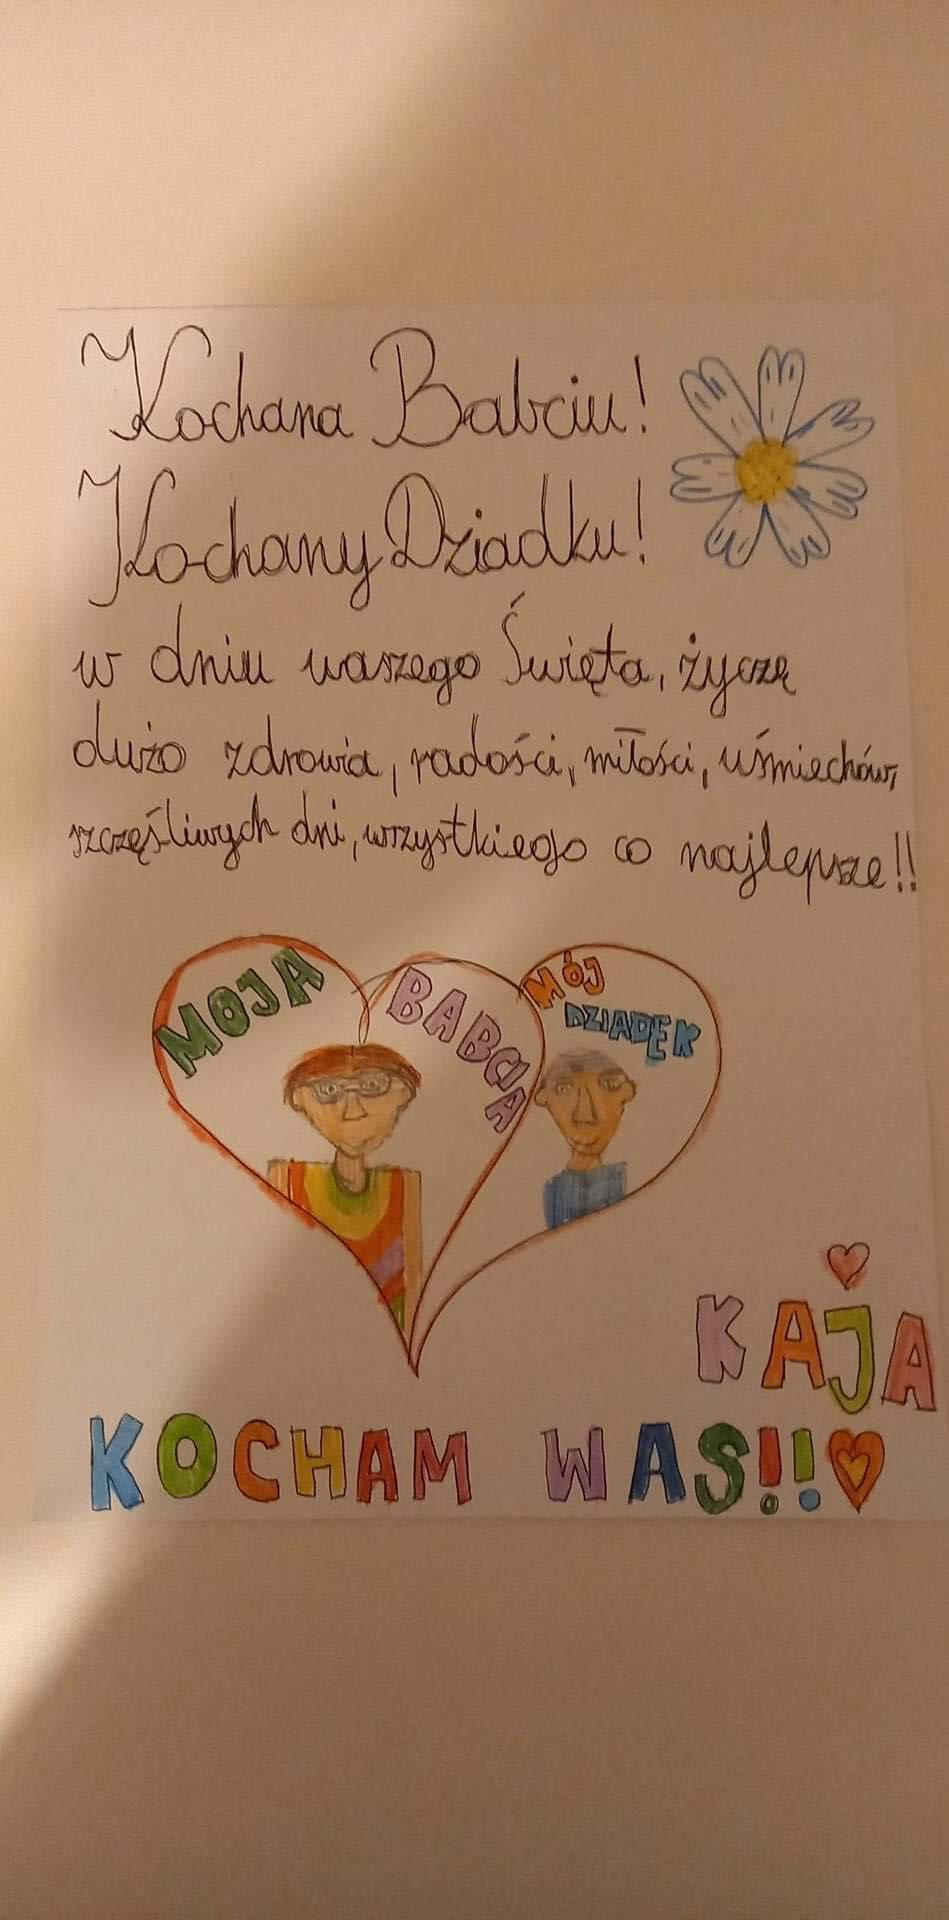 Kochana Babciu!
Kochany Dziadku!
w dniu waszego Święta, życzę
dużo zdrowia, radości, miłości, uśmiechów,
szczęśliwych dni, wszystkiego co najlepsze!!
MOJA BABCIA
MÓJ
DZIADĘK
KAJA
KOCHAM WAS!!